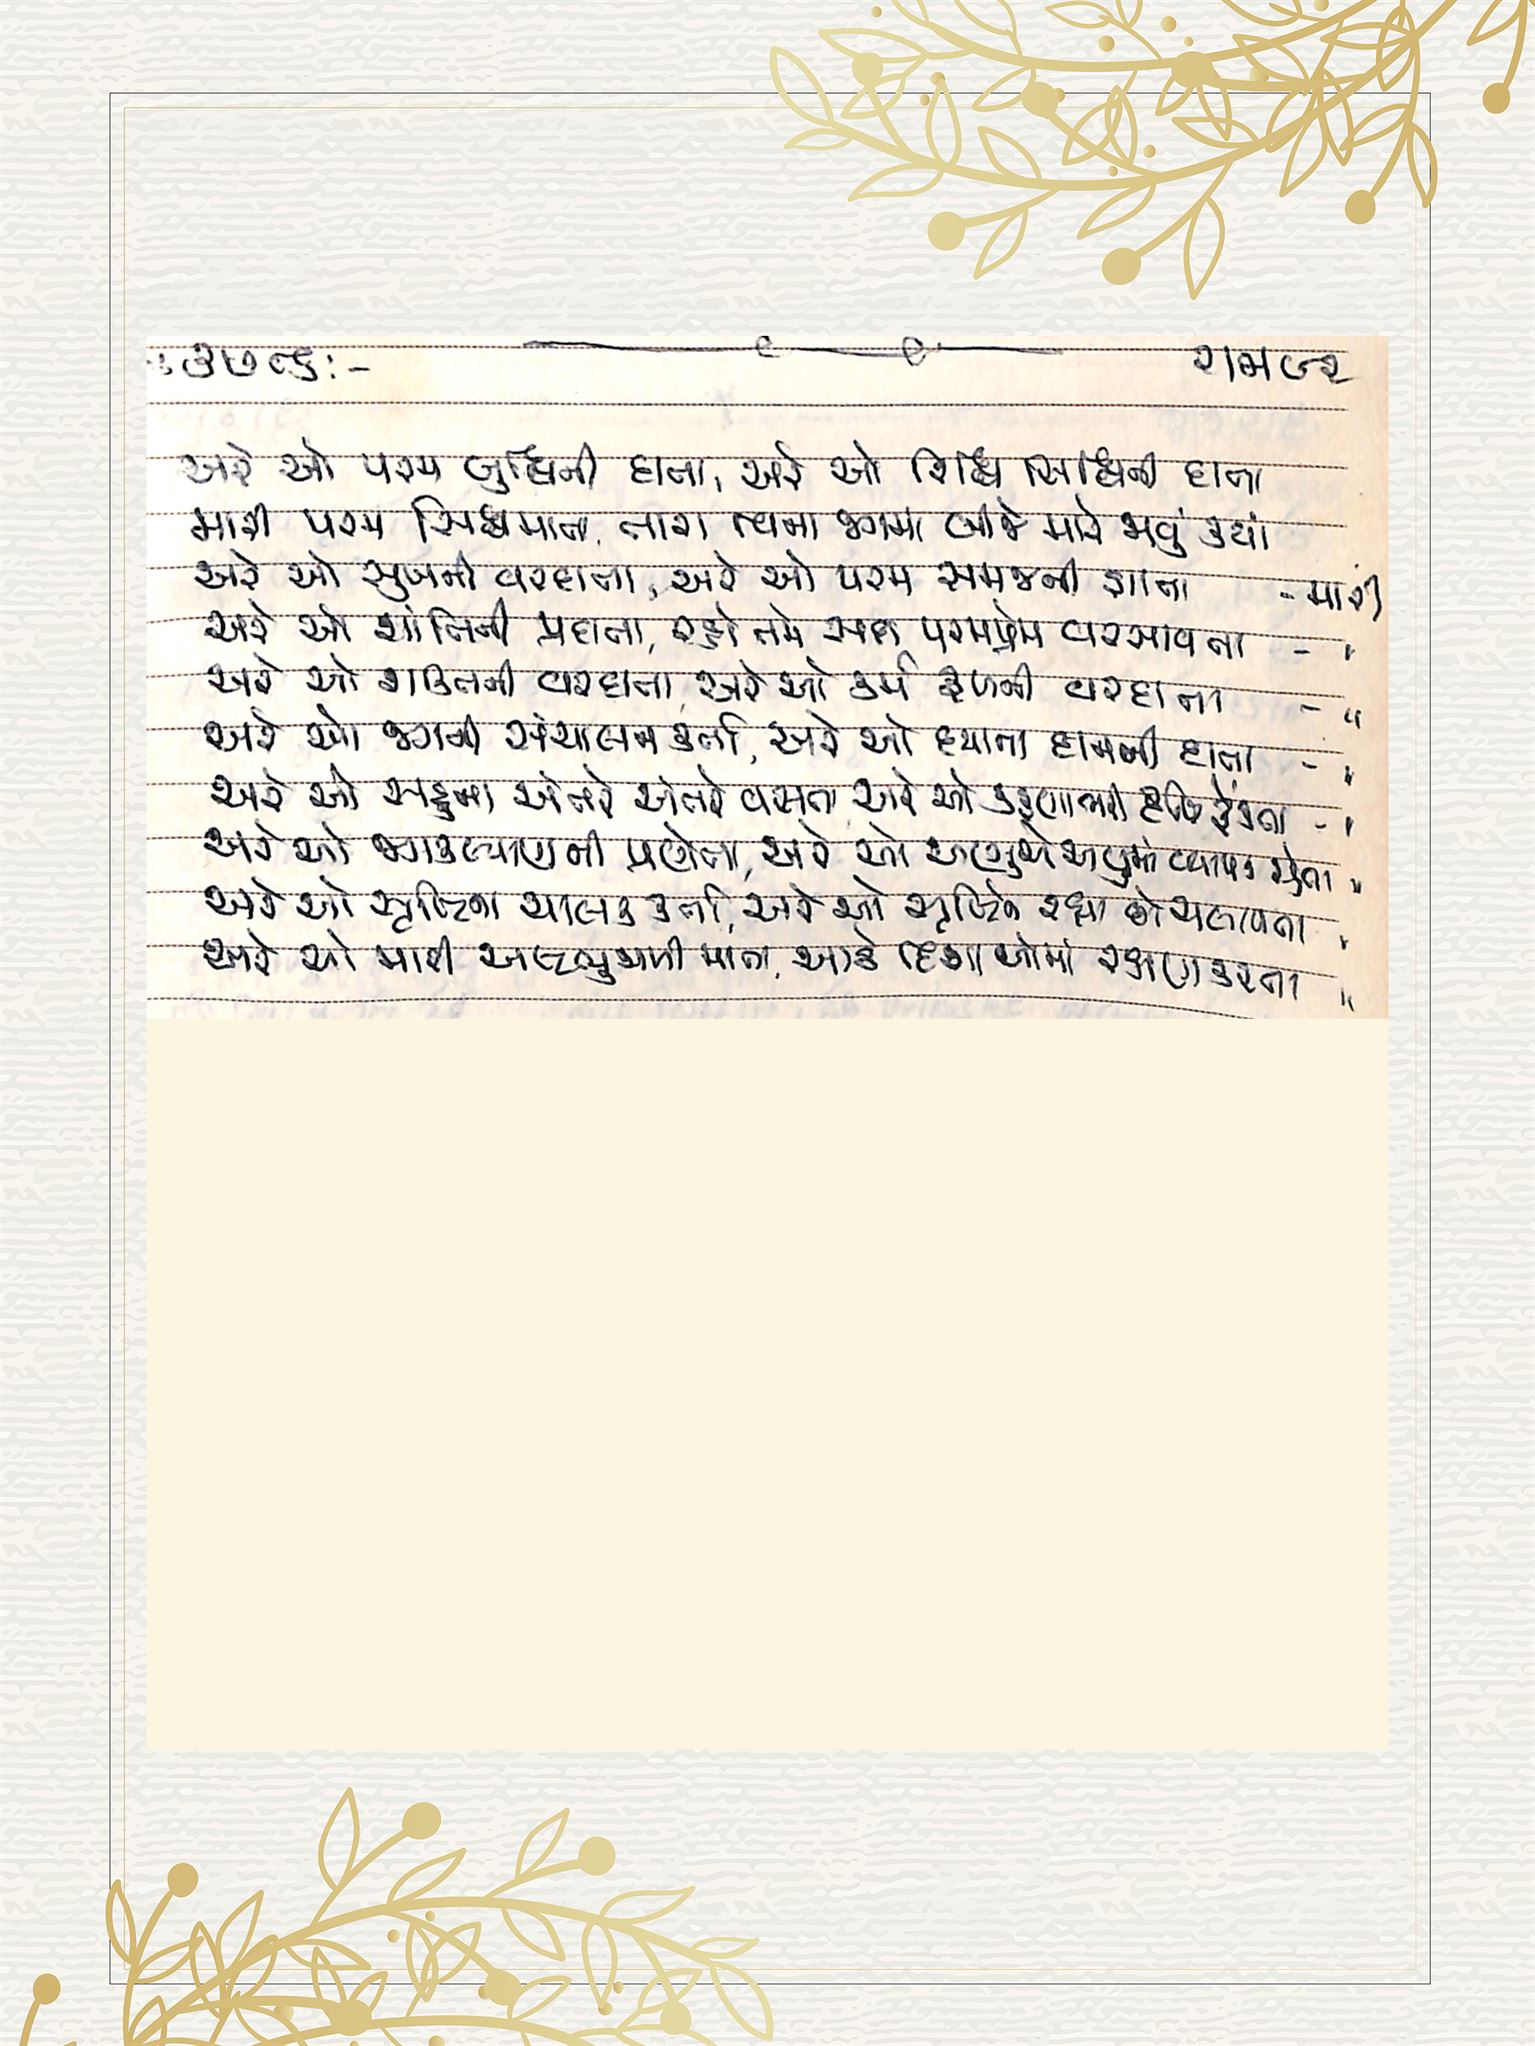 રામજર
અરે ઓ પરમ બુધ્ધિની દાતા, અરે ઓ રિધ્ધિ સિધ્ધિની દાતા
મારી પરમ સિધ્ધમાતા, તારા વિના જગમાં બીજે મારે જવું કયાં
અરે ઓ સુખની વરદાતા, અરે ઓ પરમ સમજની જ્ઞાતા - મારી
અરે ઓ શાંતિની પ્રદાતા, રહો તમે સદા પરમપ્રેમ વરસાવતા - "
અરે ઓ શકિતની વરદાતા, અરે ઓ કર્મ ફળની વરદાતા - "
અરે ઓ જગની સંચાલન કર્તા, અરે ઓ દયાના દાનની દાતા - "
અરે ઓ સહુના અંતરે અંતરે વસતા, અરે ઓ કરૂણાભરી દ્રષ્ટિ ફેંકતા - "
અરે ઓ જગકલ્યાણની પ્રણેતા, અરે ઓ અણુએ અણુમાં વ્યાપક "
અરે ઓ સૃષ્ટિના ચાલક કર્તા, અરે ઓ સૃષ્ટિને રહ્યા છો ચલાવતા "
અરે ઓ મારી માતા, આઠે દિશાઓમાં રક્ષણ કરતા "